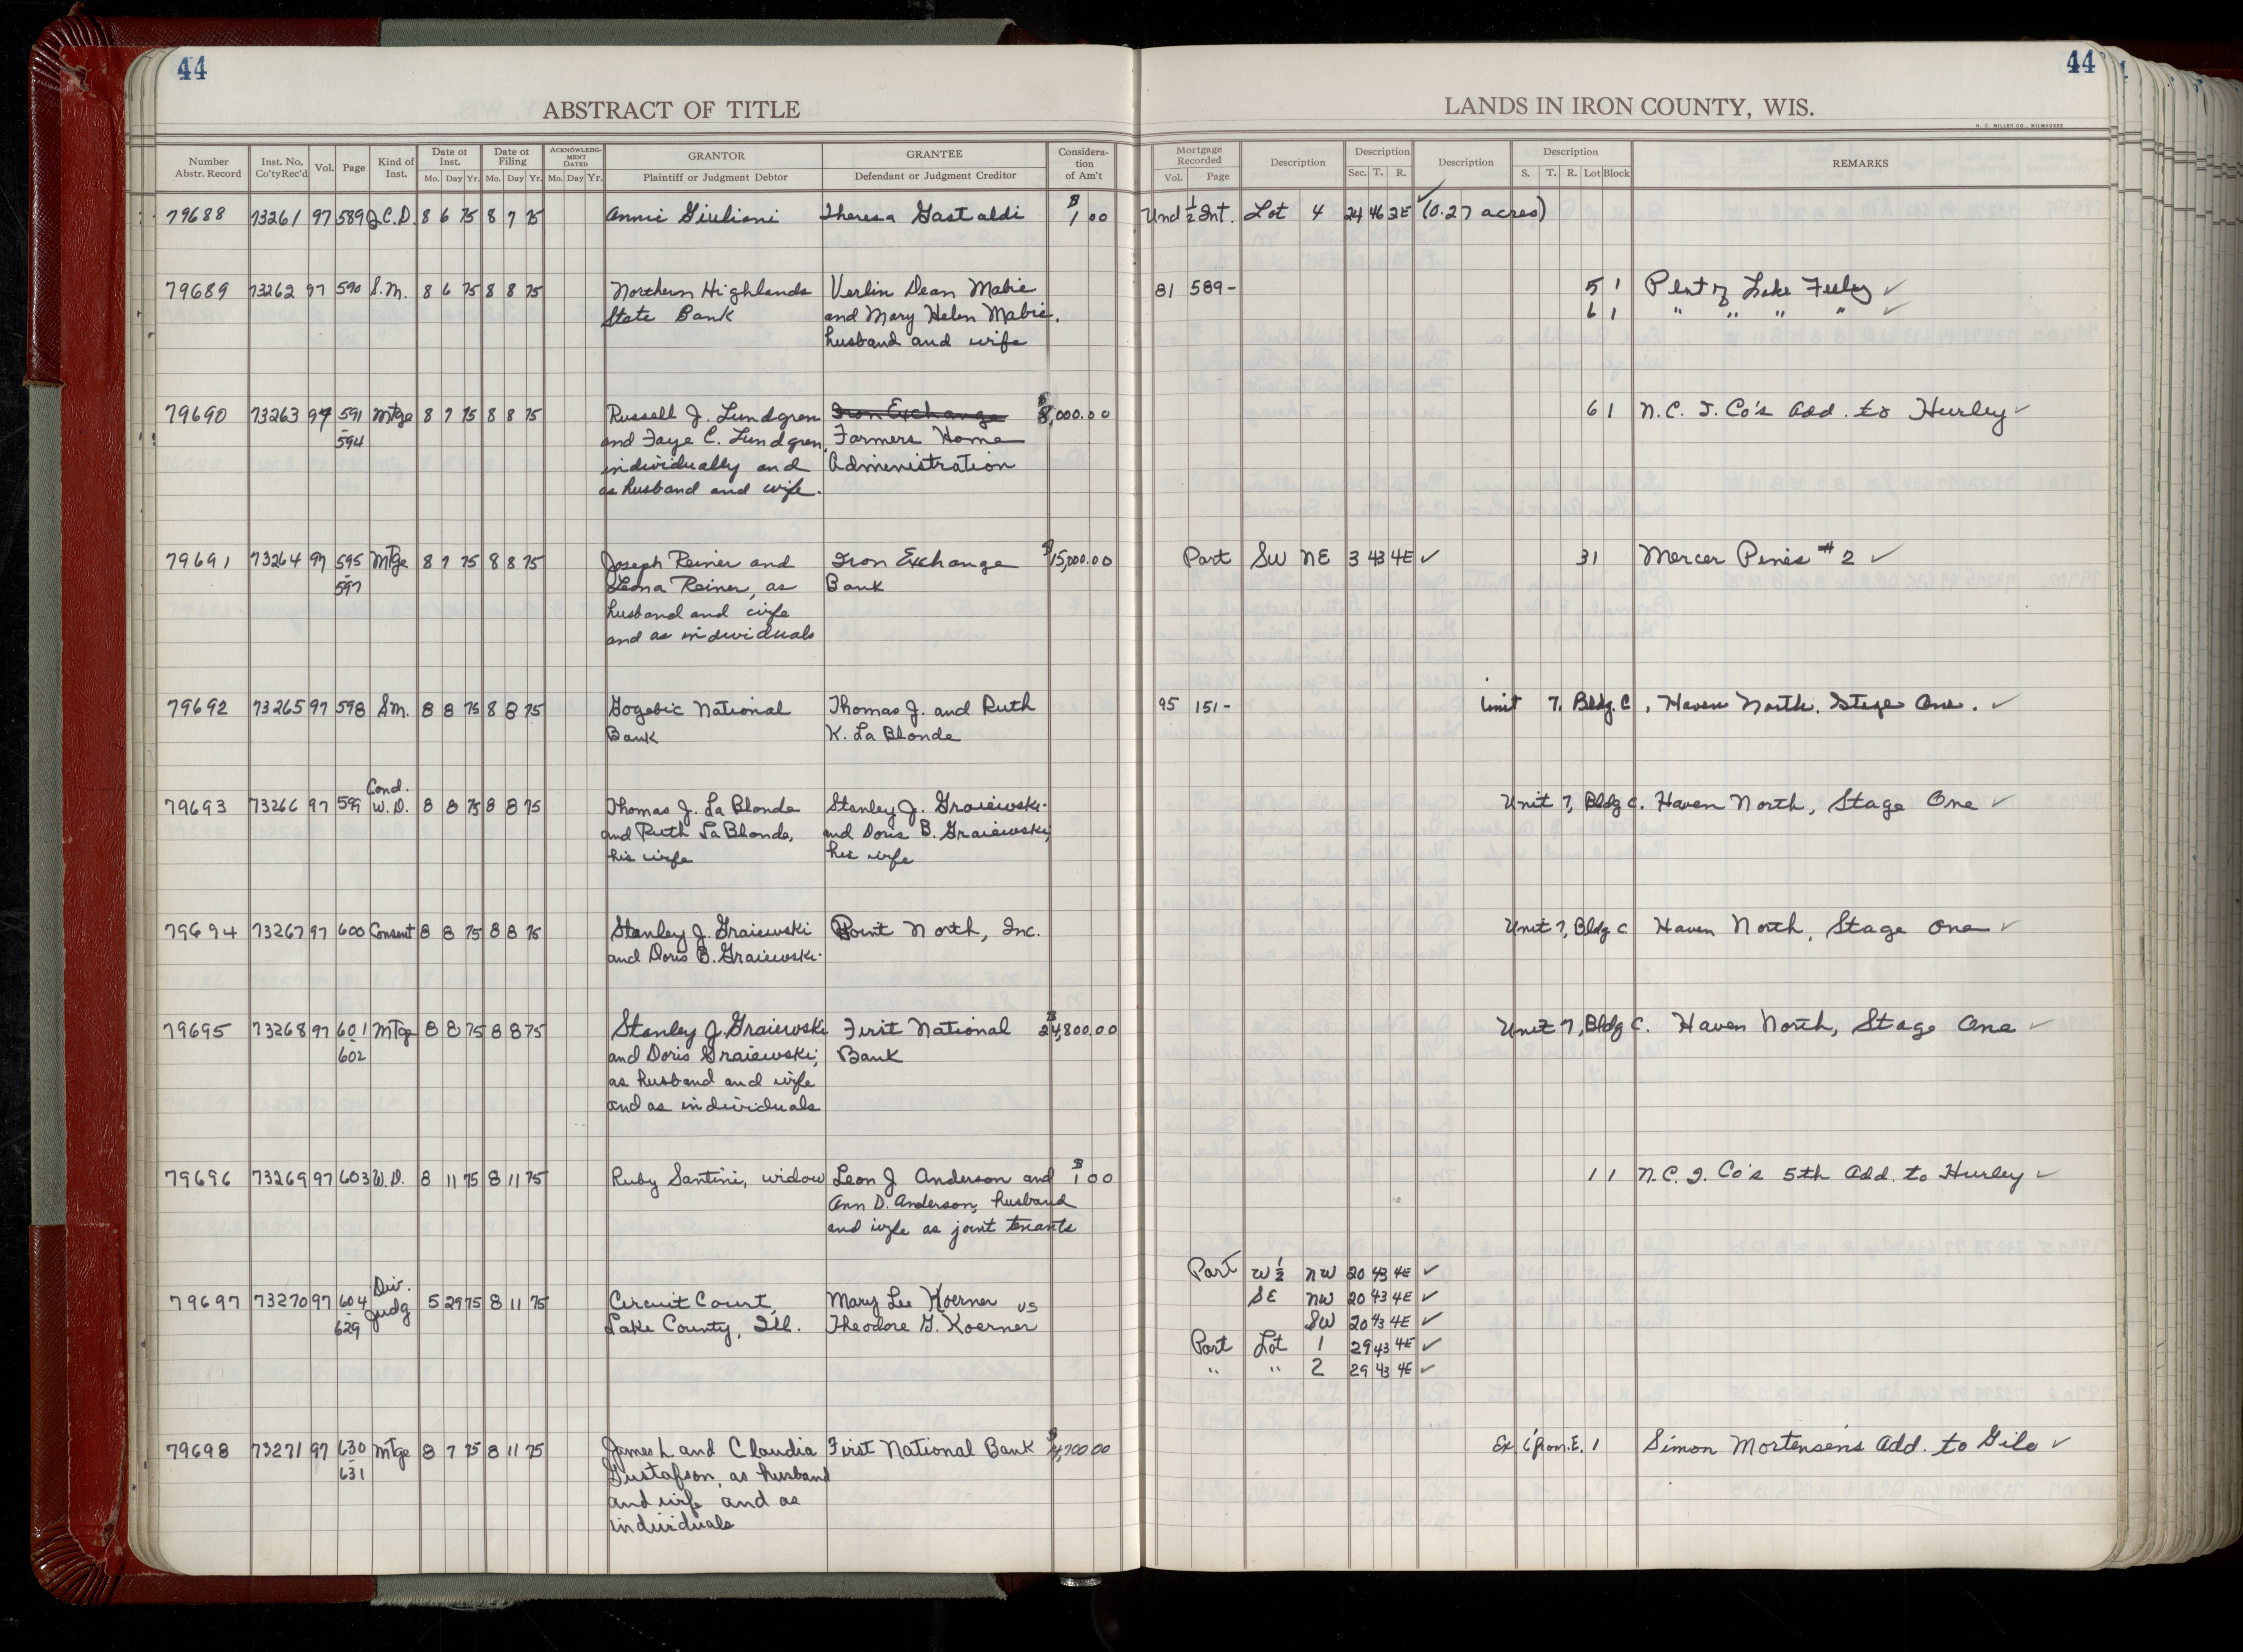 44
44
ABSTRACT OF TITLE
LANDS IN IRON COUNTY, WIS.
H. C. MILLER CO., MILWAUKEE
Number Abstr. Record Inst. No. Co'tyRec'd Vol. Page Kind of Inst. Date of Inst. Mo. Day Yr. Date of Filing Mo. Day Yr. ACKNOWLEDGMENT DATED Mo. Day Yr. GRANTOR Plaintiff or Judgment Debtor GRANTEE Defendant or Judgment Creditor Consideration of Am't Mortgage Recorded Vol. Page Description Description Sec. T. R. Description Description S. T. R. Lot Block REMARKS
79688 73261 97 589 Q.C.D. 8 6 75 8 7 75 Annie Giuliani Theresa Gastaldi $1 00 Und 1/2 Int. Lot 4 24 46 2E ✓ (0.27 acres)
79689 73262 97 590 S.M. 8 6 75 8 8 75 Northern Highlands Verlin Dean Mabie 81 589- 5 1 Plat of Lake Feeley ✓
State Bank and Mary Helen Mabie, 6 1 " " " " ✓
husband and wife
79690 73263 97 591 Mtge 8 7 75 8 8 75 Russell J. Lundgren Iron Exchange $8,000.00 6 1 N.C.I. Co's Add. to Hurley ✓
-594 and Faye C. Lundgren, Farmers Home
individually and Administration
as husband and wife.
79691 73264 97 595 Mtge 8 7 75 8 8 75 Joseph Reiner and Iron Exchange $15,000.00 Part SW NE 3 43 4E ✓ 31 Mercer Pines #2 ✓
-597 Leona Reiner, as Bank
husband and wife
and as individuals
79692 73265 97 598 S.M. 8 8 75 8 8 75 Gogebic National Thomas J. and Ruth 95 151- Unit 7, Bldg. C, Haven North, Stage One. ✓
Bank K. La Blonde
Cond.
79693 73266 97 599 W.D. 8 8 75 8 8 75 Thomas J. La Blonde Stanley J. Graiewski Unit 7, Bldg C. Haven North, Stage One ✓
and Ruth La Blonde, and Doris B. Graiewski,
his wife his wife
79694 73267 97 600 Consent 8 8 75 8 8 75 Stanley J. Graiewski Point North, Inc. Unit 7, Bldg C Haven North, Stage One ✓
and Doris B. Graiewski
79695 73268 97 601 Mtge 8 8 75 8 8 75 Stanley J. Graiewski First National $24,800.00 Unit 7, Bldg C. Haven North, Stage One ✓
-602 and Doris Graiewski, Bank
as husband and wife
and as individuals
79696 73269 97 603 W.D. 8 11 75 8 11 75 Ruby Santini, widow Leon J Anderson and $1 00 1 1 N.C.I. Co's 5th Add. to Hurley ✓
Ann D. Anderson, husband
and wife as joint tenants
Part W 1/2 NW 20 43 4E ✓
79697 73270 97 604 Div. Judg 5 29 75 8 11 75 Circuit Court, Mary Lee Koerner vs SE NW 20 43 4E ✓
-629 Lake County, Ill. Theodore G. Koerner SW 20 43 4E ✓
Part Lot 1 29 43 4E ✓
" " 2 29 43 4E ✓
79698 73271 97 630 Mtge 8 7 75 8 11 75 James L and Claudia First National Bank $4,700.00 Ex 6' from E. 1 Simon Mortensen's Add. to Gile ✓
-631 Gustafson, as husband
and wife and as
individuals